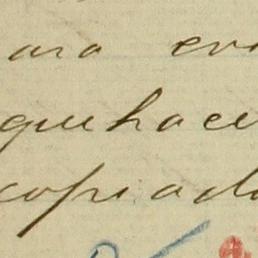 ara evi
quehace
copiado